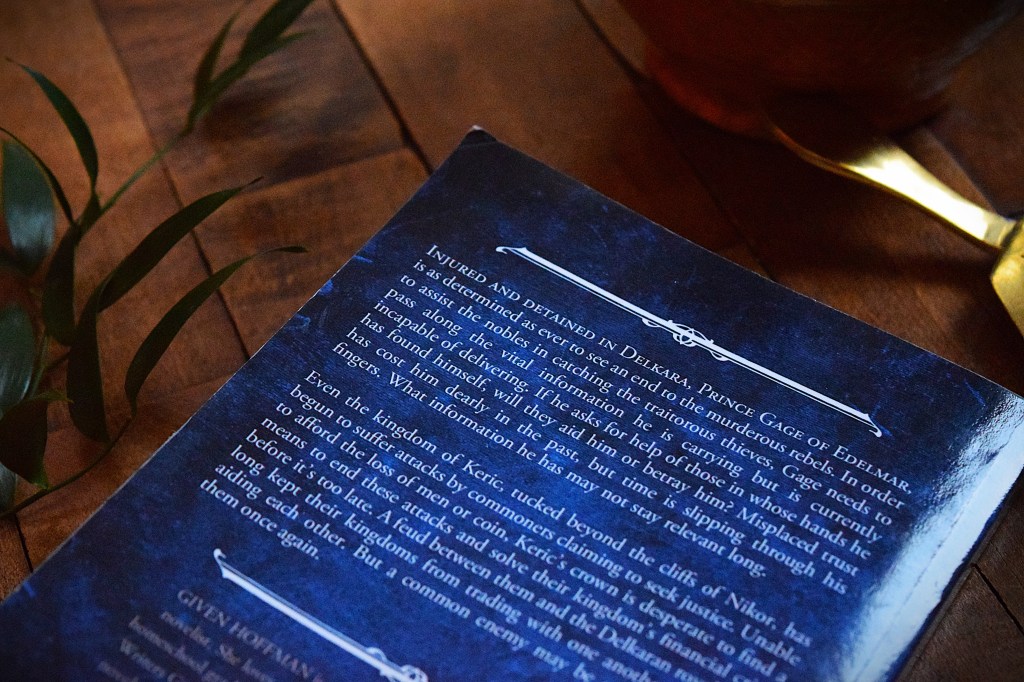 INJURED AND DETAINED IN DELKARA, PRINCE GAGE OF EDELMAR,
is as determined as ever to see an end to the murderous rebels. In order
to assist the nobles in catching the traitorous thieves, Gage needs to
pass along the vital information he is carrying but is currently
incapable of delivering. If he asks for help of those in whose hands he
has found himself, will they aid him or betray him? Misplaced trust
has cost him dearly in the past, but time is slipping through his
fingers. What information he has may not stay relevant long.
Even the kingdom of Keric, tucked beyond the cliffs of Nikor, has
begun to suffer attacks by commoners claiming to seek justice. Unable
to afford the loss of men or coin, Keric's crown is desperate to find a
means to end these attacks and solve their kingdom's financial
before it's too late. A feud between them and the Delkaran
long kept their kingdoms from trading with one
aiding each other. But a common enemy may be
them once again.
GIVEN HOFFMAN
novelist. She
homeschool